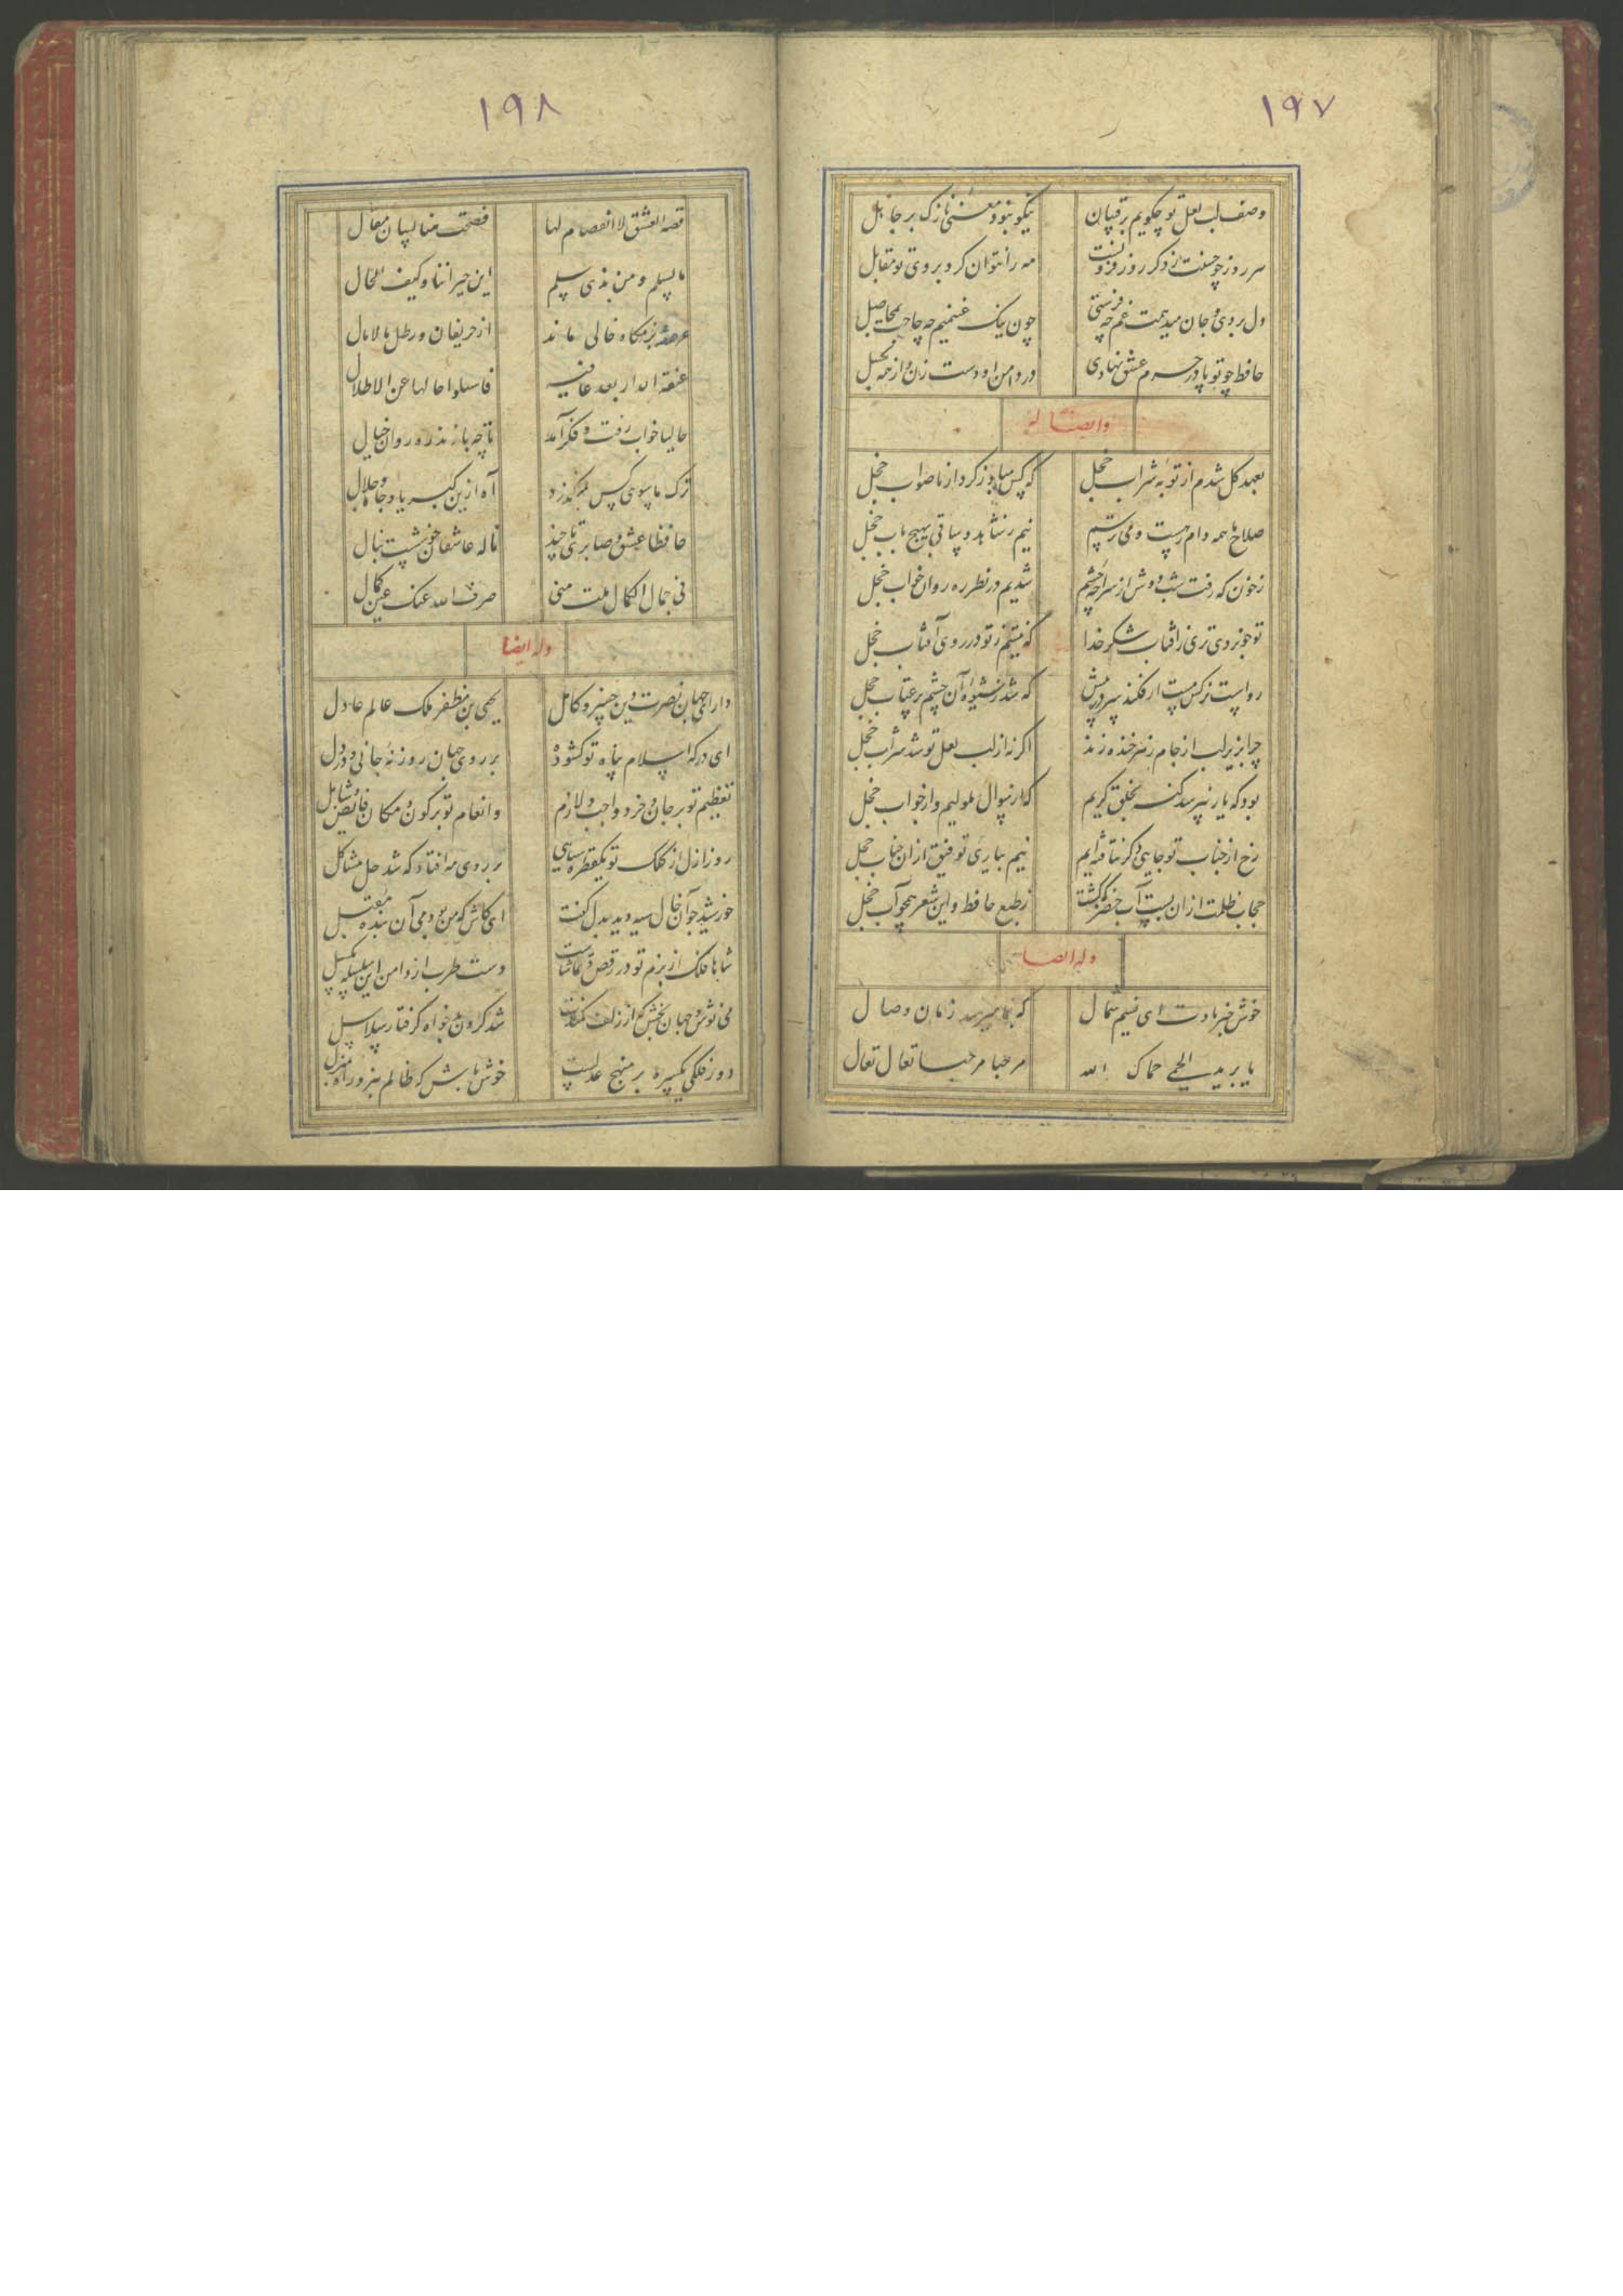 ۱۹۷
وصف لب لعل تو چکویم برقیبان نیکو نبود معنی نازک بر جاهل
هر روز چو حسنت ز دکر روز فزونست مه را نتوان کرد بروی تو مقابل
دل بردی و جان میدهمت غم چه فرستی چون نیک غنیمیم چه حاجت بمحاصل
حافظ چو تو پا در حرم عشق نهادی در دامن او دست زن و از همه بکسل
وایضا له
بعهد کل شدم از توبه شراب خجل که کس مباد ز کردار ناصواب خجل
صلاح ما همه دام رهست و می رسم نیم ز شاهد و ساقی بهیچ باب خجل
ز خون که رفت شب دوش از سراچه چشم شدیم در نظر ره روان خواب خجل
تو خوبروی تری ز آفتاب شکر خدا که نیستم ز تو در روی آفتاب خجل
رواست نرکس مست ار فکند سر در پیش که شد ز شیوه آن چشم پر عتاب خجل
چرا بزیر لب از جام زهر خنده زند اکر نه از لب لعل تو شد شراب خجل
بود که یار نپرسد کنه بخلق کریم که از سوال ملولیم و از جواب خجل
رخ از جناب تو جایی دکر نتافته ایم نیم بیاری توفیق از ان جناب خجل
حجاب ظلمت از ان بست آب خضر که کشت ز طبع حافظ و این شعر همچو آب خجل
وله ایضا
خوش خبر بادت ای نسیم شمال که بما میرسد زمان وصال
یا برید الحمی حماک الله مرحبا مرحبا تعال تعال
۱۹۸
قصه العشق لا انفصام لها فصحت هنا لسان مقال
ما لسلمی و من بذی سلم این جیراننا و کیف الحال
عرصه بزمکاه خالی ماند از حریفان و رطل مالامال
عفة الدار بعد عافیه فاسلوا حالها عن الاطلال
حالیا خواب رفت و فکر آمد تا چه بازند ره روان خیال
ترک ما سوی کس نمیکذرد آه ازین کبریا و جاه و جلال
حافظا عشق و صابری تا چند ناله عاشقان خوشست بنال
فی جمال الکمال نلت منی صرف الله عنک عین کمال
وله ایضا
دارای جهان نصرت دین خسرو کامل یحیی بن مظفر ملک عالم عادل
ای درکه اسلام پناه تو کشوده بر روی جهان روزنه جانی و در دل
تعظیم تو بر جان و خرد واجب و لازم وانعام تو بر کون و مکان فایض و شامل
روز ازل از کلک تو یکقطره سیاهی بر روی مه افتاد که شد حل مشاکل
خورشید چو آن خال سیه دید بدل کفت ای کاش که من بودمی آن بنده مقبل
شاها فلک از بزم تو در رقص و تماشاست دست طرب از دامن این سلسله مکسل
می نوش و جهان بخش که از زلف کمندت شد کردن بدخواه کرفتار سلاسل
دور فلکی یکسره بر منهج عدلست خوش باش که ظالم نبرد راه بمنزل